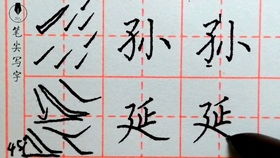 笔尖写字
孙 孙
延 延
45°